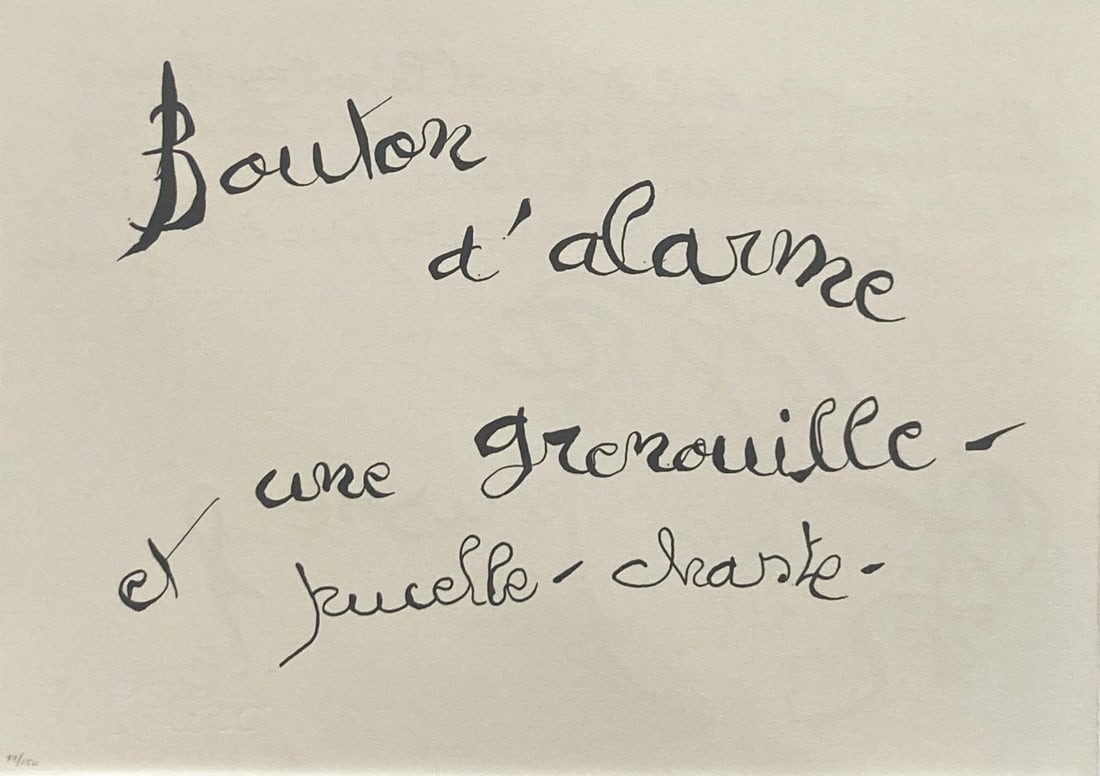 Bouton
d'alarme
une grenouille -
et pucelle - chaste -